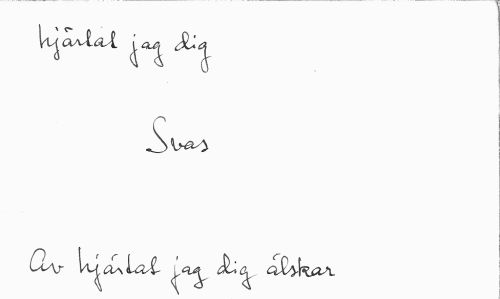 hjärtat jag dig
Svas
Av hjärtat jag dig älskar